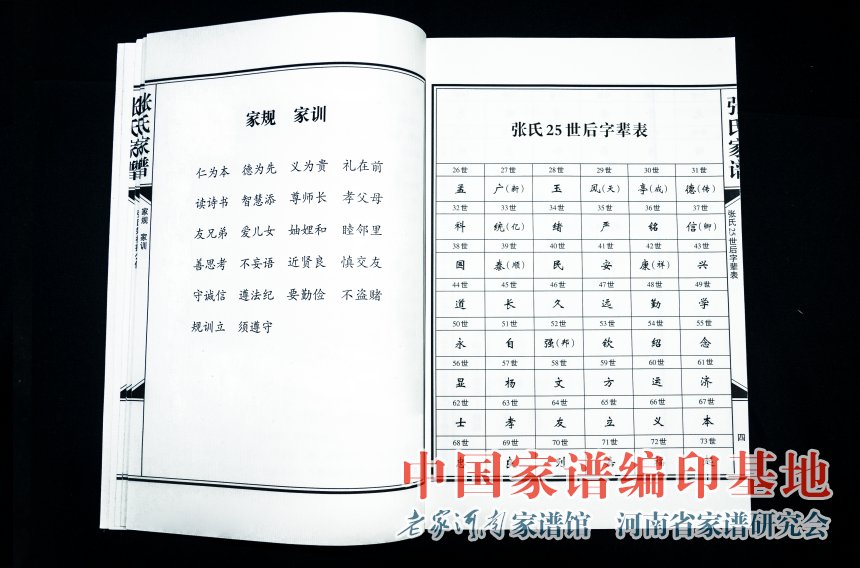 家规 家训
仁为本 德为先 义为贵 礼在前
读诗书 智慧添 尊师长 孝父母
友兄弟 爱儿女 妯娌和 睦邻里
善思考 不妄语 近贤良 慎交友
守诚信 遵法纪 要勤俭 不盗赌
规训立 须遵守
张氏家谱
家规 家训
张氏25世后字辈表
26世 27世 28世 29世 30世 31世
孟 广(新) 玉 凤(天) 亭(成) 德(传)
32世 33世 34世 35世 36世 37世
科 统(亿) 绪 严 铭 信(卿)
38世 39世 40世 41世 42世 43世
国 泰(顺) 民 安 康(祥) 兴
44世 45世 46世 47世 48世 49世
道 长 久 远 勤 学
50世 51世 52世 53世 54世 55世
永 自 强(邦) 钦 绍 念
56世 57世 58世 59世 60世 61世
显 杨 文 方 运 济
62世 63世 64世 65世 66世 67世
士 孝 友 立 义 本
68世 69世 70世 71世 72世 73世
张氏家谱
张氏25世后字辈表
四
中国家谱编印基地
老家河南家谱馆 河南省家谱研究会